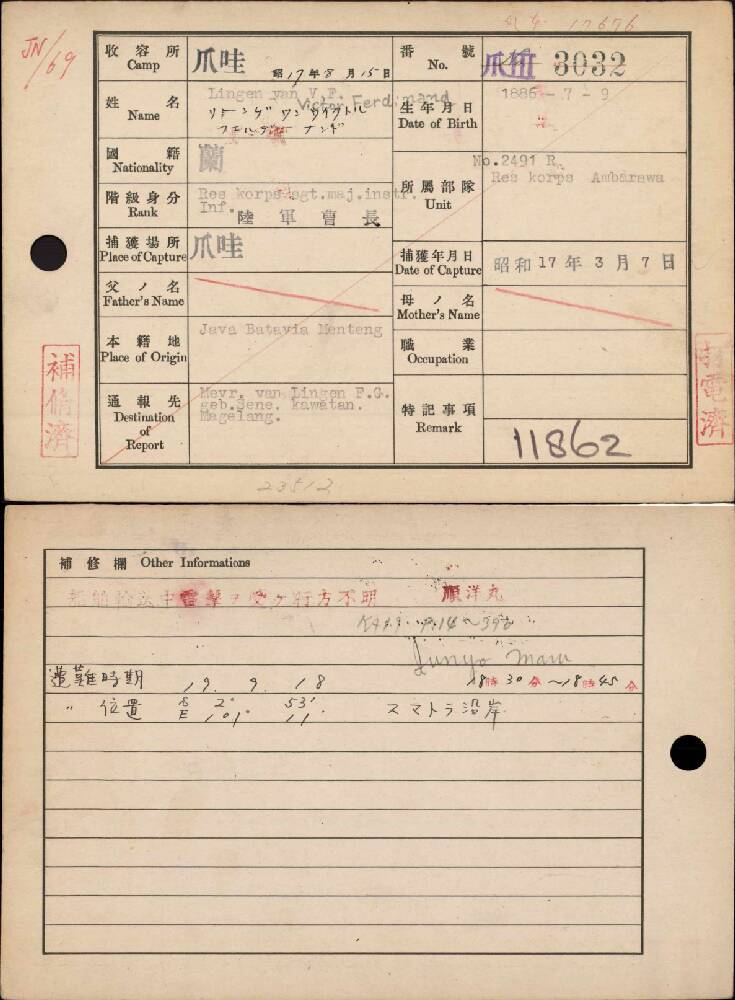 JN/69
17676
收容所 Camp
爪哇
昭17年8月15日
番號 No.
爪 3032
姓名 Name
Lingen van V.F.
Victor Ferdinand
生年月日 Date of Birth
1886-7-9
國籍 Nationality
蘭
所屬部隊 Unit
No.2491 R.
Res korps Ambarawa
階級身分 Rank
Res korps sgt.maj.instr.
Inf.
陸軍曹長
捕獲場所 Place of Capture
爪哇
捕獲年月日 Date of Capture
昭和17年3月7日
父ノ名 Father's Name
母ノ名 Mother's Name
本籍地 Place of Origin
Java Batavia Menteng
職業 Occupation
通報先 Destination of Report
Mevr. van Lingen F.G.
geb.Sene. kawatan.
Magelang.
特記事項 Remark
11862
補修濟
電濟
23512
補修欄 Other Informations
船舶輸送中雷擊ヲ受ケ行方不明 順洋丸
Junyo Maru
遭難時期 19. 9. 18 18時30分~18時45分
〃 位置 S 2° 53′ E 101° 11′ スマトラ沿岸